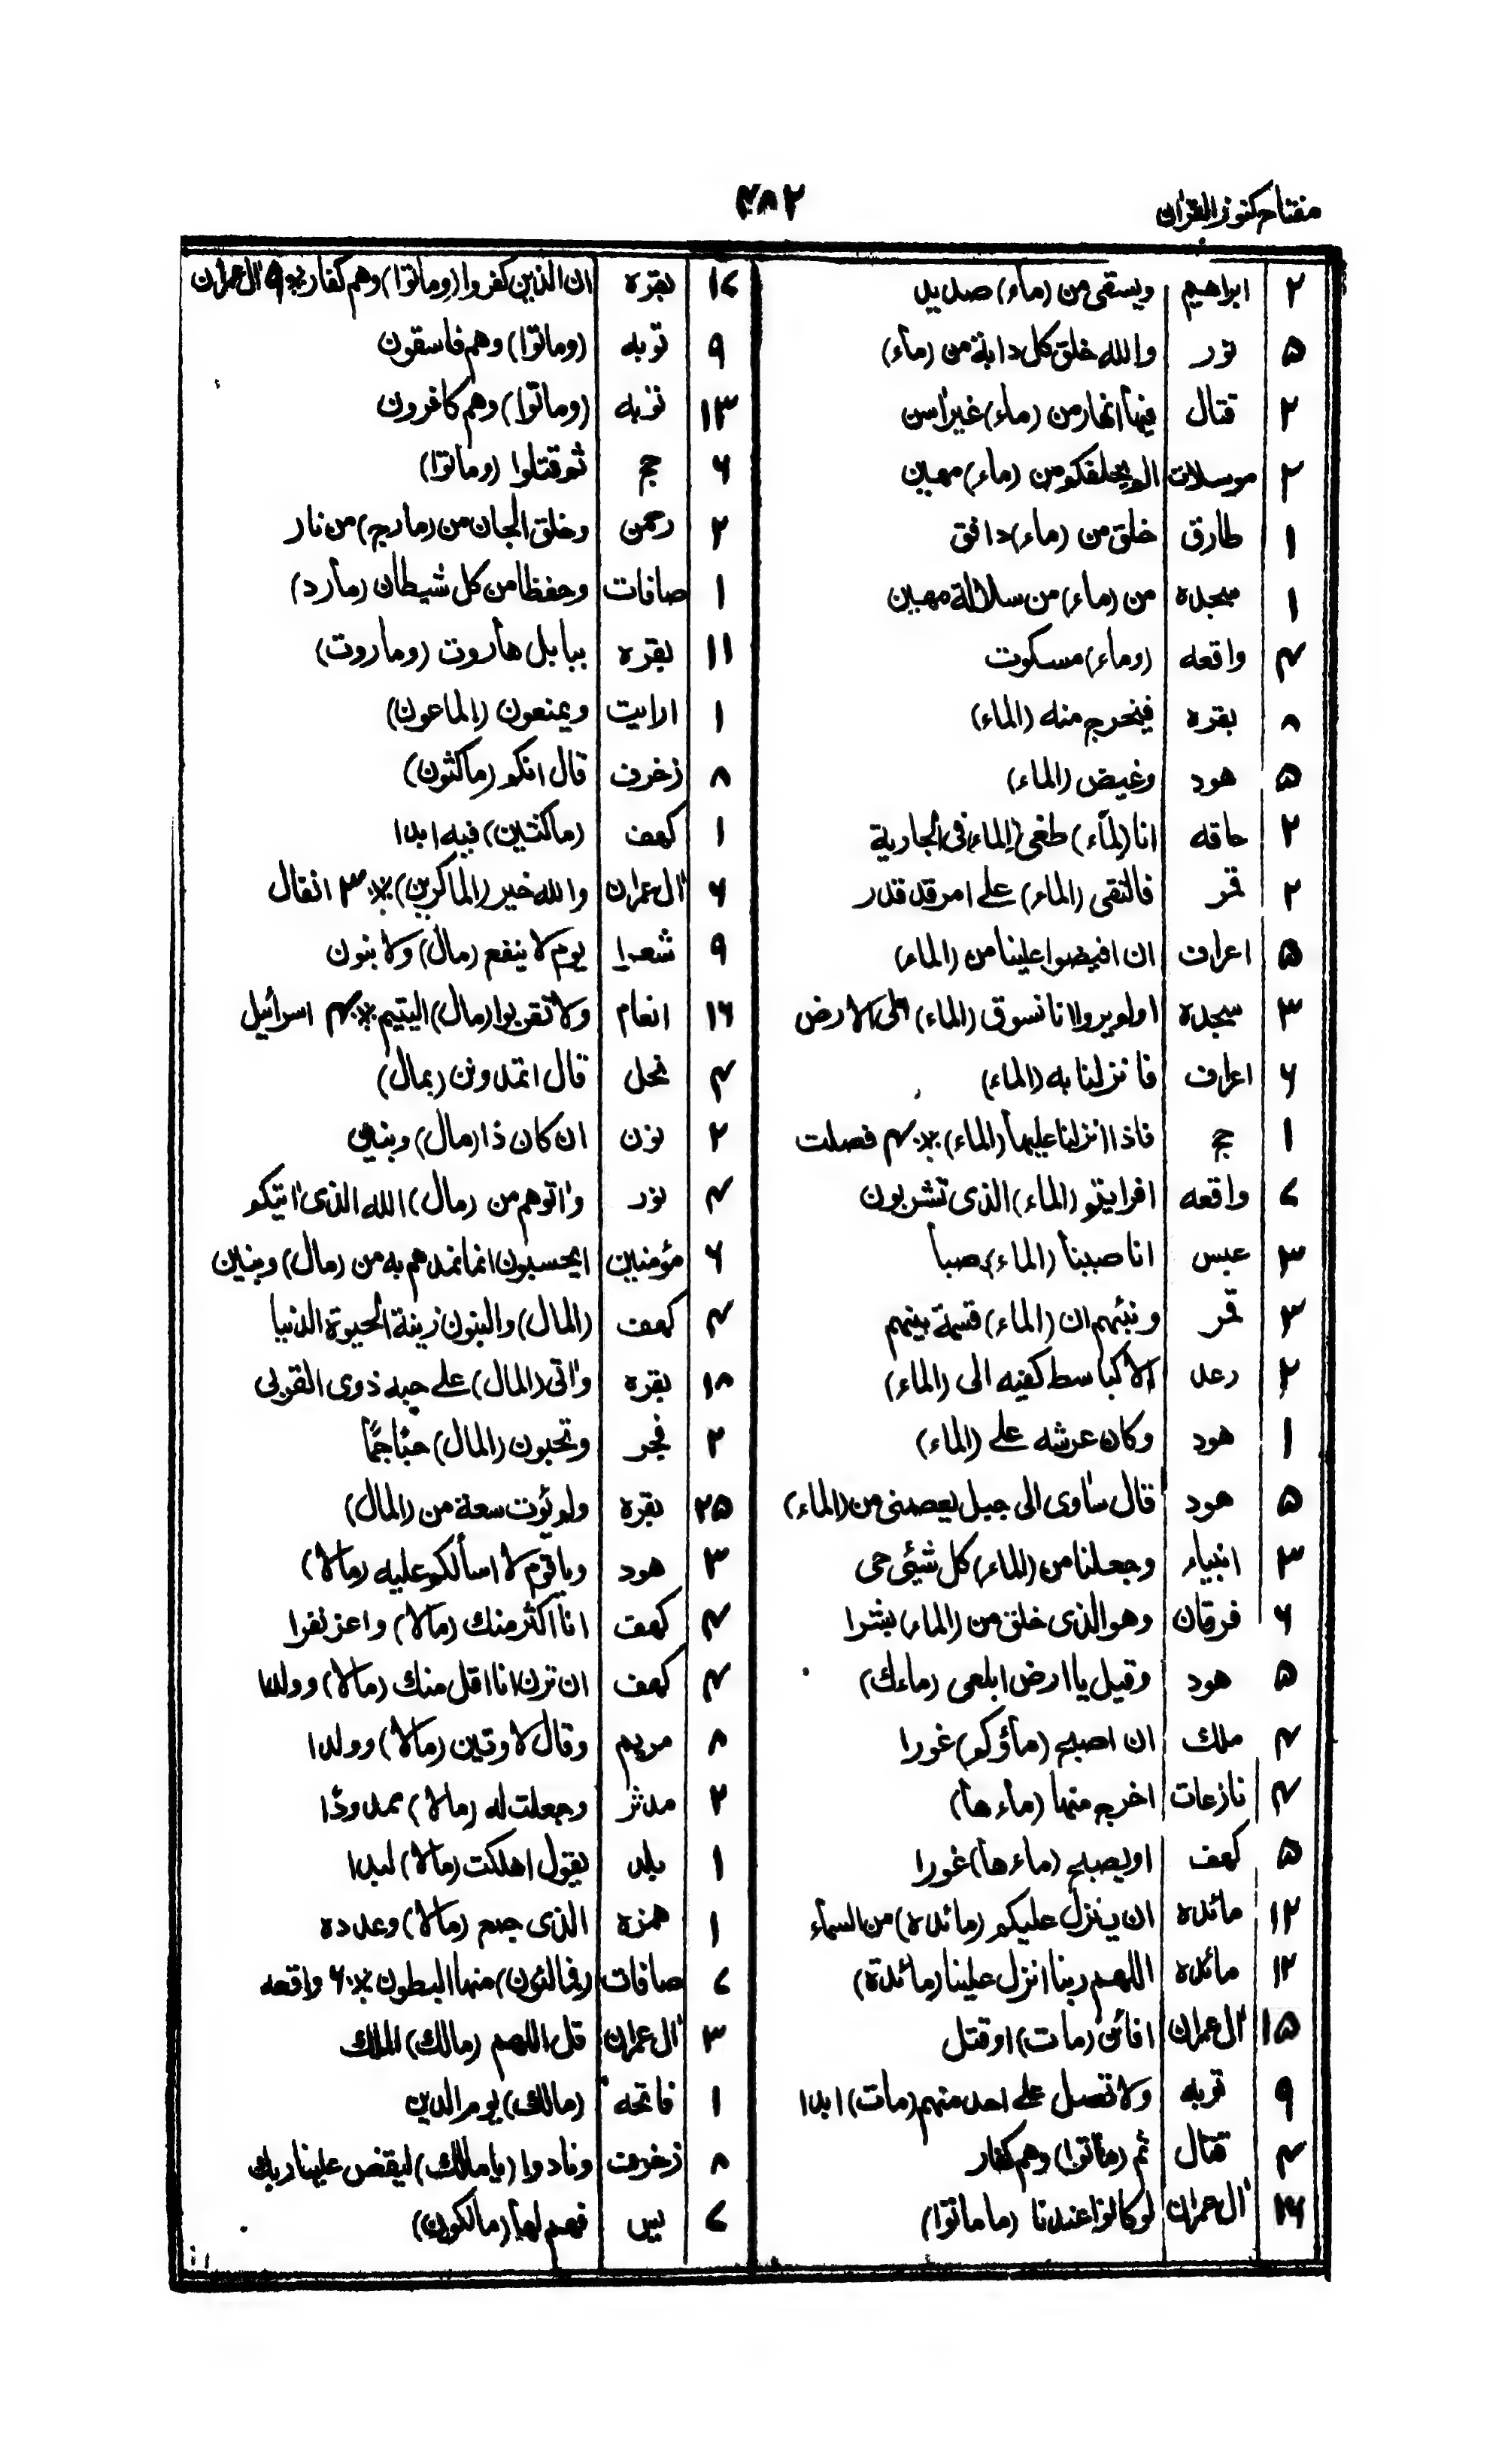 مفتاح كنوز القران
۴۸۲
۲ ابراهيم ويسقى من (ماء) صديد
۵ نور والله خلق كل دابة من (ماء)
۲ قتال فيها انهار من (ماء) غيراسن
۲ مرسلات الم يخلقكم من (ماء) مهين
۱ طارق خلق من (ماء) دافق
۱ سجده من (ماء) من سلالة مهين
۴ واقعه (وماء) مسكوت
۸ بقره فيخرج منه (الماء)
۵ هود وغيض (الماء)
۲ حاقه انا (لمّاء) طغى (الماء) فى الجارية
۲ قمر فالتقى (الماء) على امر قد قدر
۵ اعراف ان افيضوا علينا من (الماء)
۳ سجده اولم يروا انا نسوق (الماء) الى الارض
۶ اعراف فانزلنا به (الماء)
۱ حج فاذا انزلنا عليها (الماء) ٪ ۴ فصلت
۷ واقعه افرايتم (الماء) الذى تشربون
۳ عبس انا صببنا (الماء) صبا
۳ قمر ونبئهم ان (الماء) قسمة بينهم
۲ رعد الا كباسط كفيه الى (الماء)
۱ هود وكان عرشه على (الماء)
۵ هود قال ساوى الى جبل يعصمنى من (الماء)
۳ انبياء وجعلنا من (الماء) كل شيئى حى
۶ فرقان وهو الذى خلق من (الماء) بشرا
۵ هود وقيل يا ارض ابلعى (ماءك)
۴ ملك ان اصبح (ماؤكم) غورا
۴ نازعات اخرج منها (ماءها)
۵ كهف او يصبح (ماءها) غورا
۱۲ مائده ان ينزل عليكم (مائده) من السماء
۱۲ مائده اللهم ربنا انزل علينا (مائدة)
۱۵ ال عمران افائن (مات) او قتل
۹ توبه ولا تصل على احد منهم (مات) ابدا
۴ قتال ثم (ماتوا) وهم كفار
۱۶ ال عمران لو كانوا عندنا (ما ماتوا)
۱۷ بقره ان الذين كفروا (وماتوا) وهم كفار ٪ ۹ ال عمران
۹ توبه (وماتوا) وهم فاسقون
۱۳ توبه (وماتوا) وهم كافرون
۶ حج ثم قتلوا (وماتوا)
۲ رحمن وخلق الجان من (مارج) من نار
۱ صافات وحفظا من كل شيطان (مارد)
۱۱ بقره ببابل هاروت (وماروت)
۱ ارايت ويمنعون (الماعون)
۸ زخرف قال انكم (ماكثون)
۱ كهف (ماكثين) فيه ابدا
۶ ال عمران والله خير (الماكرين) ٪ ۳ انفال
۹ شعرا يوم لا ينفع (مال) ولا بنون
۱۶ انعام ولا تقربوا (مال) اليتيم ٪ ۴ اسرائيل
۳ نحل قال اتمدونن (بمال)
۲ نون ان كان ذا (مال) وبنين
۴ نور واتوهم من (مال) الله الذى اتيكم
۶ مؤمنين ايحسبون انما نمدهم به من (مال) وبنين
۴ كهف (المال) والبنون زينة الحيوة الدنيا
۱۸ بقره واتى (المال) على حبه ذوى القربى
۲ فجر وتحبون (المال) حبّا جمّا
۲۵ بقره ولم يؤت سعة من (المال)
۳ هود ويا قوم لا اسألكم عليه (مالا)
۴ كهف انا اكثر منك (مالا) واعز نفرا
۴ كهف ان ترن انا اقل منك (مالا) وولدا
۸ مريم وقال لاوتين (مالا) وولدا
۲ مدثر وجعلت له (مالا) ممدودا
۱ بلد يقول اهلكت (مالا) لبدا
۱ همزه الذى جمع (مالا) وعدده
۷ صافات (فمالئون) منها البطون ٪ ۶ واقعه
۳ ال عمران قل اللهم (مالك) الملك
۱ فاتحه (مالك) يوم الدين
۸ زخرف ونادوا (يا مالك) ليقض علينا ربك
۷ يس فهم لها (مالكون)